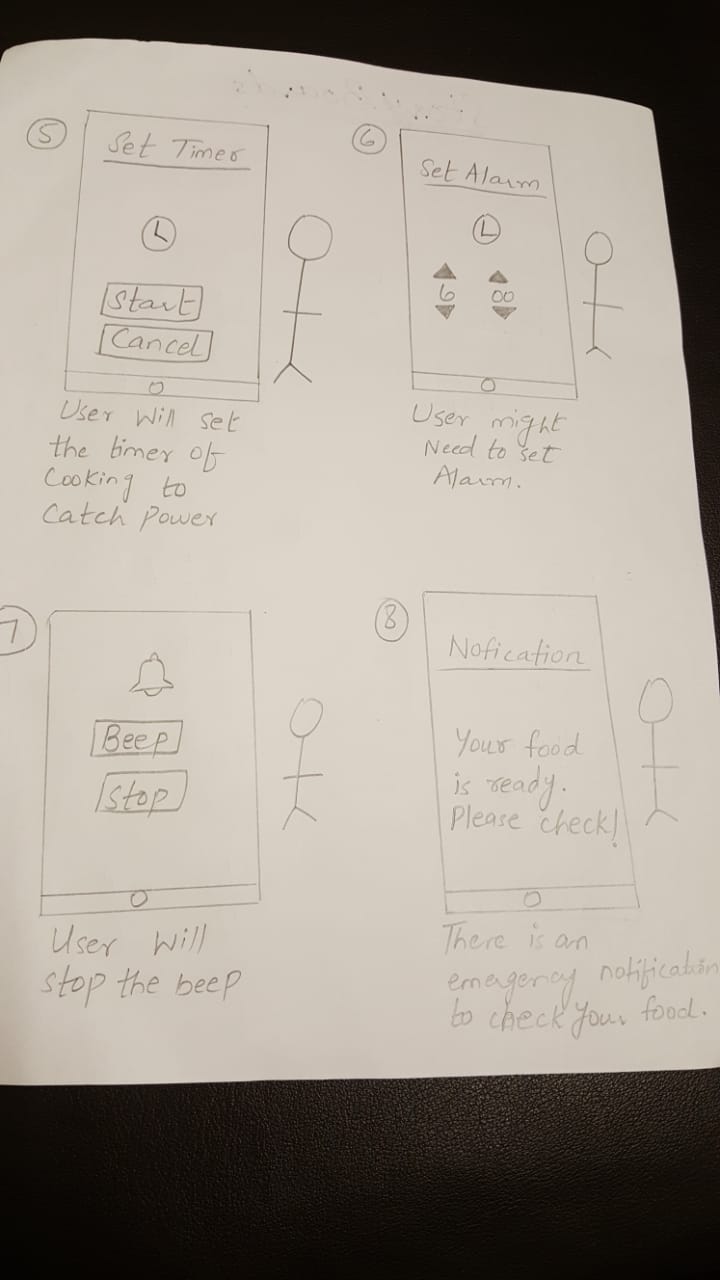 5
Set Timer
Start
Cancel
User will set
the timer of
Cooking to
Catch Power
6
Set Alarm
6 00
User might
Need to set
Alarm.
7
Beep
Stop
User will
stop the beep
8
Nofication
Your food
is ready.
Please check!
There is an
emergency notification
to check your food.